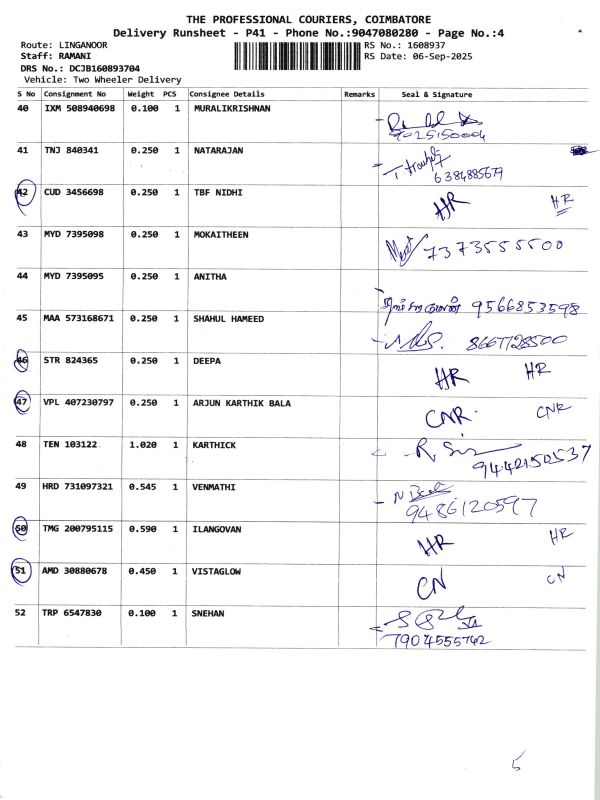 THE PROFESSIONAL COURIERS, COIMBATORE
Delivery Runsheet - P41 - Phone No.:9047080280 - Page No.:4
Route: LINGANOOR RS No.: 1608937
Staff: RAMANI RS Date: 06-Sep-2025
DRS No.: DCJB160893704
Vehicle: Two Wheeler Delivery
S No Consignment No Weight PCS Consignee Details Remarks Seal & Signature
40 IXM 508940698 0.100 1 MURALIKRISHNAN
9025150004
41 TNJ 840341 0.250 1 NATARAJAN
6384885679
42 CUD 3456698 0.250 1 TBF NIDHI HR HR
43 MYD 7395098 0.250 1 MOKAITHEEN 7373555500
44 MYD 7395095 0.250 1 ANITHA
9566853598
45 MAA 573168671 0.250 1 SHAHUL HAMEED
8667728500
46 STR 824365 0.250 1 DEEPA HR HR
47 VPL 407230797 0.250 1 ARJUN KARTHIK BALA CNR. CNR
48 TEN 103122 1.020 1 KARTHICK
9442150537
49 HRD 731097321 0.545 1 VENMATHI
9486120597
50 TMG 200795115 0.590 1 ILANGOVAN HR HR
51 AMD 30880678 0.450 1 VISTAGLOW CN CN
52 TRP 6547830 0.100 1 SNEHAN
7904555742
5